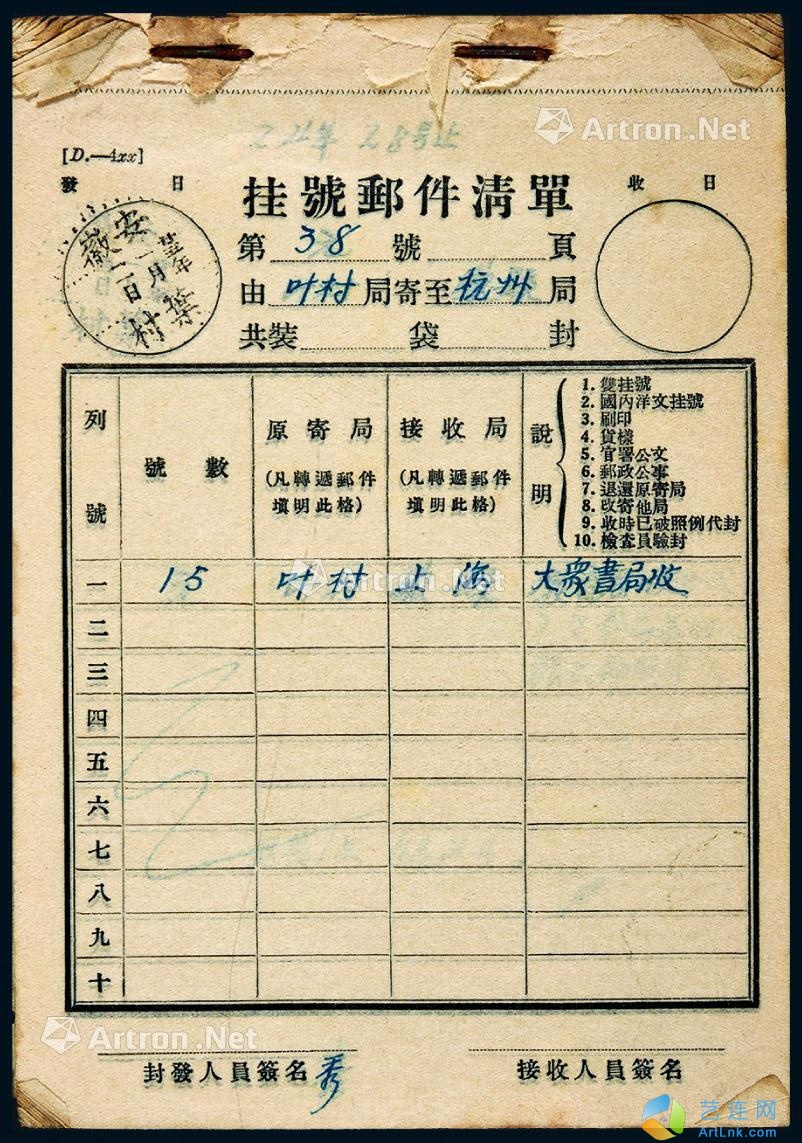 Artron.Net
[D.—4xx]
發 日
挂號郵件清單
收 日
安徽
葉村
第 38 號 頁
由 叶村 局寄至 杭州 局
共裝 袋 封
列號
號數
原寄局
(凡轉遞郵件
塡明此格)
接收局
(凡轉遞郵件
塡明此格)
說明
1. 雙挂號
2. 國內洋文挂號
3. 刷印
4. 貨樣
5. 官署公文
6. 郵政公事
7. 退還原寄局
8. 改寄他局
9. 收時已破照例代封
10. 檢查員驗封
一 15 叶村 上海 大衆書局收
二
三
四
五
六
七
八
九
十
Artron.Net
Artron.Net
封發人員簽名 秀
接收人員簽名
艺连网
ArtLnk.com